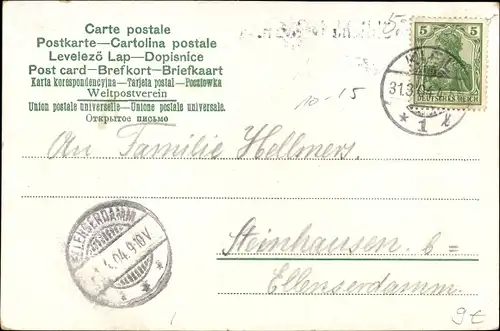 Carte postale
Postkarte—Cartolina postale
Levelező Lap—Dopisnice
Post card—Brefkort—Briefkaart
Karta korespondencyjna—Tarjeta postal—Pocztówka
Weltpostverein
Union postale universelle—Unione postale universale.
Открытое письмо
5 5
DEUTSCHES REICH
31.3.04
* 1 l
10-15
An Familie Hellmers.
ELLENSERDAMM
.4.04.9-10V.
* * *
Steinhausen b=
Ellenserdamm.
9€